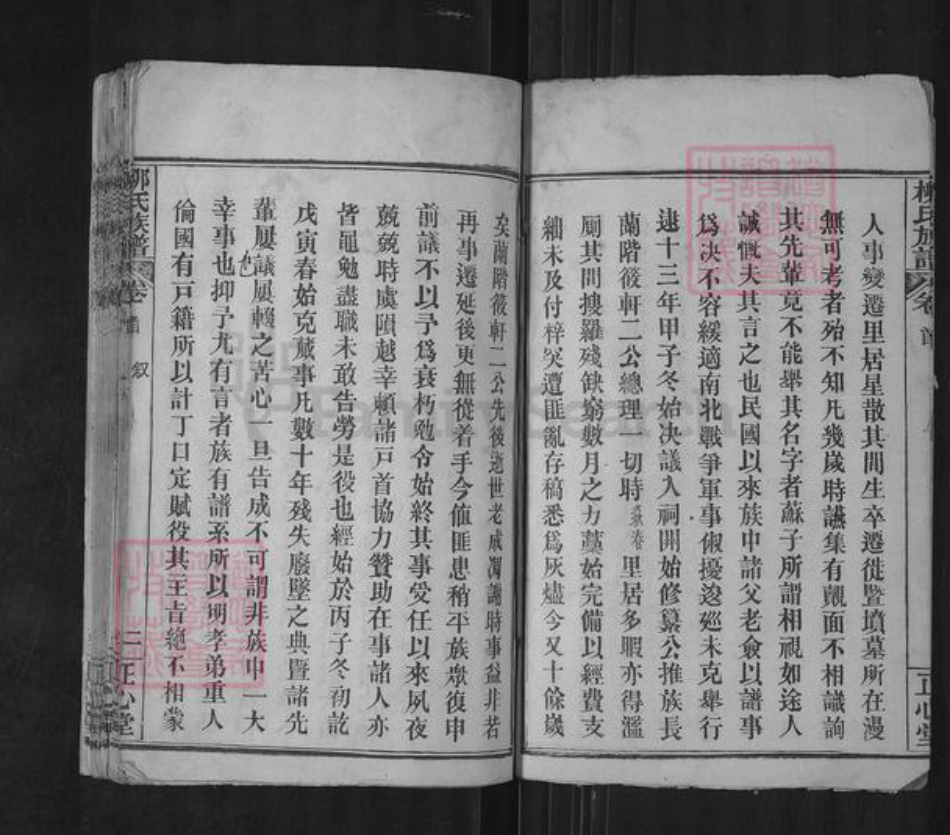 柳氏族譜
卷首
正心堂
人事變遷里居星散其間生卒遷徙暨墳墓所在漫
無可考者殆不知凡幾歲時讌集有覿面不相識詢
其先輩竟不能舉其名字者蘇子所謂相視如途人
誠慨夫其言之也民國以來族中諸父老僉以譜事
爲决不容緩適南北戰爭軍事俶擾逡廵未克舉行
逮十三年甲子冬始决議入祠開始修纂公推族長
蘭階筱軒二公總理一切時 里居多暇亦得濫
厠其間搜羅殘缺窮數月之力藁始完備以經費支
絀未及付梓突遭匪亂存稿悉爲灰燼今又十餘歲
矣蘭階筱軒二公先後逝世老成凋謝時事益非若
再事遷延後更無從着手今值匪患稍平族衆復申
前議不以予爲衰朽勉令始終其事受任以來夙夜
兢兢時虞隕越幸賴諸戸首協力贊助在事諸人亦
皆黽勉盡職未敢告勞是役也經始於丙子冬初訖
戊寅春始克蕆事凡數十年殘失廢墜之典暨諸先
輩屢議屢輟之苦心一旦告成不可謂非族中一大
幸事也抑予尤有言者族有譜系所以明孝弟重人
倫國有戸籍所以計丁口定賦役其主旨絶不相蒙
柳氏族譜
卷首
叙
三
正心堂
FamilySearch